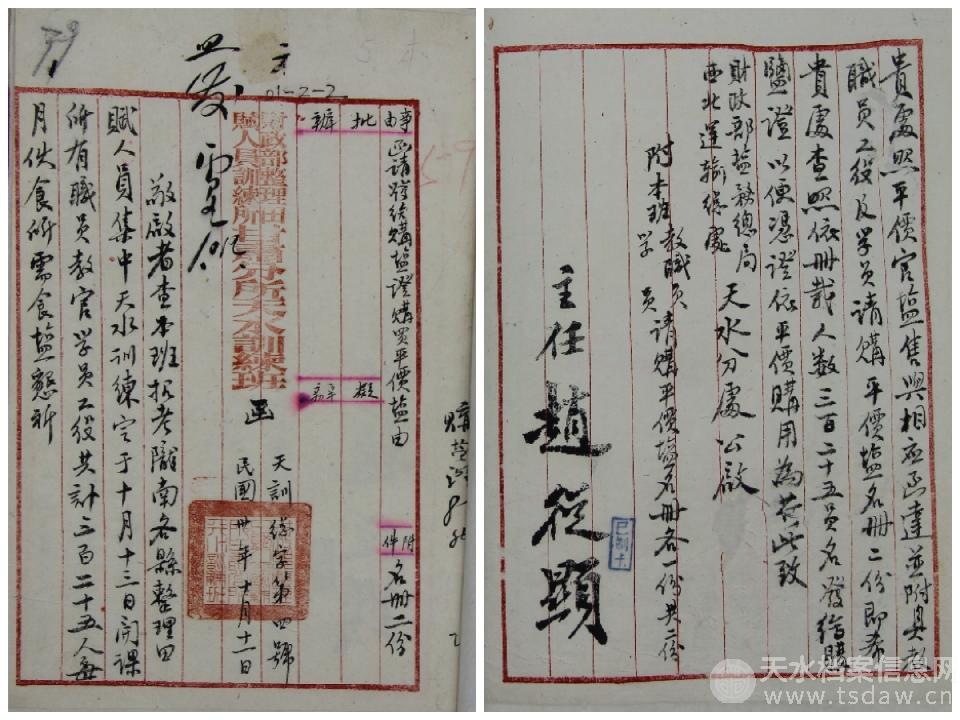 79
01-2-2
事由
批
辦
擬
辦
附件
函請發給購鹽證購買平價鹽由
名冊二份
財政部整理田
賦人員訓練所甘肅分所天水訓練班
函
天訓總字第四號
民國卅年十月十一日
敬啟者查本班招考隴南各縣整理田
賦人員集中天水訓練定于十月十三日開課
所有職員教官学員工役共計三百二十五人每
月伙食所需食鹽懇祈
貴處照平價官鹽售與相应函達並附具教
職員工役及学員請購平價鹽名册二份即希
貴處查照依册載人数三百二十五員名發給購
鹽證以便憑證依平價購用為荷此致
財政部鹽務總局
西北運輸總處
天水分處公啟
附本班教職員学員請購平價鹽名册各一份共二份
主任趙從顯
天水档案信息网
www.tsdaw.cn